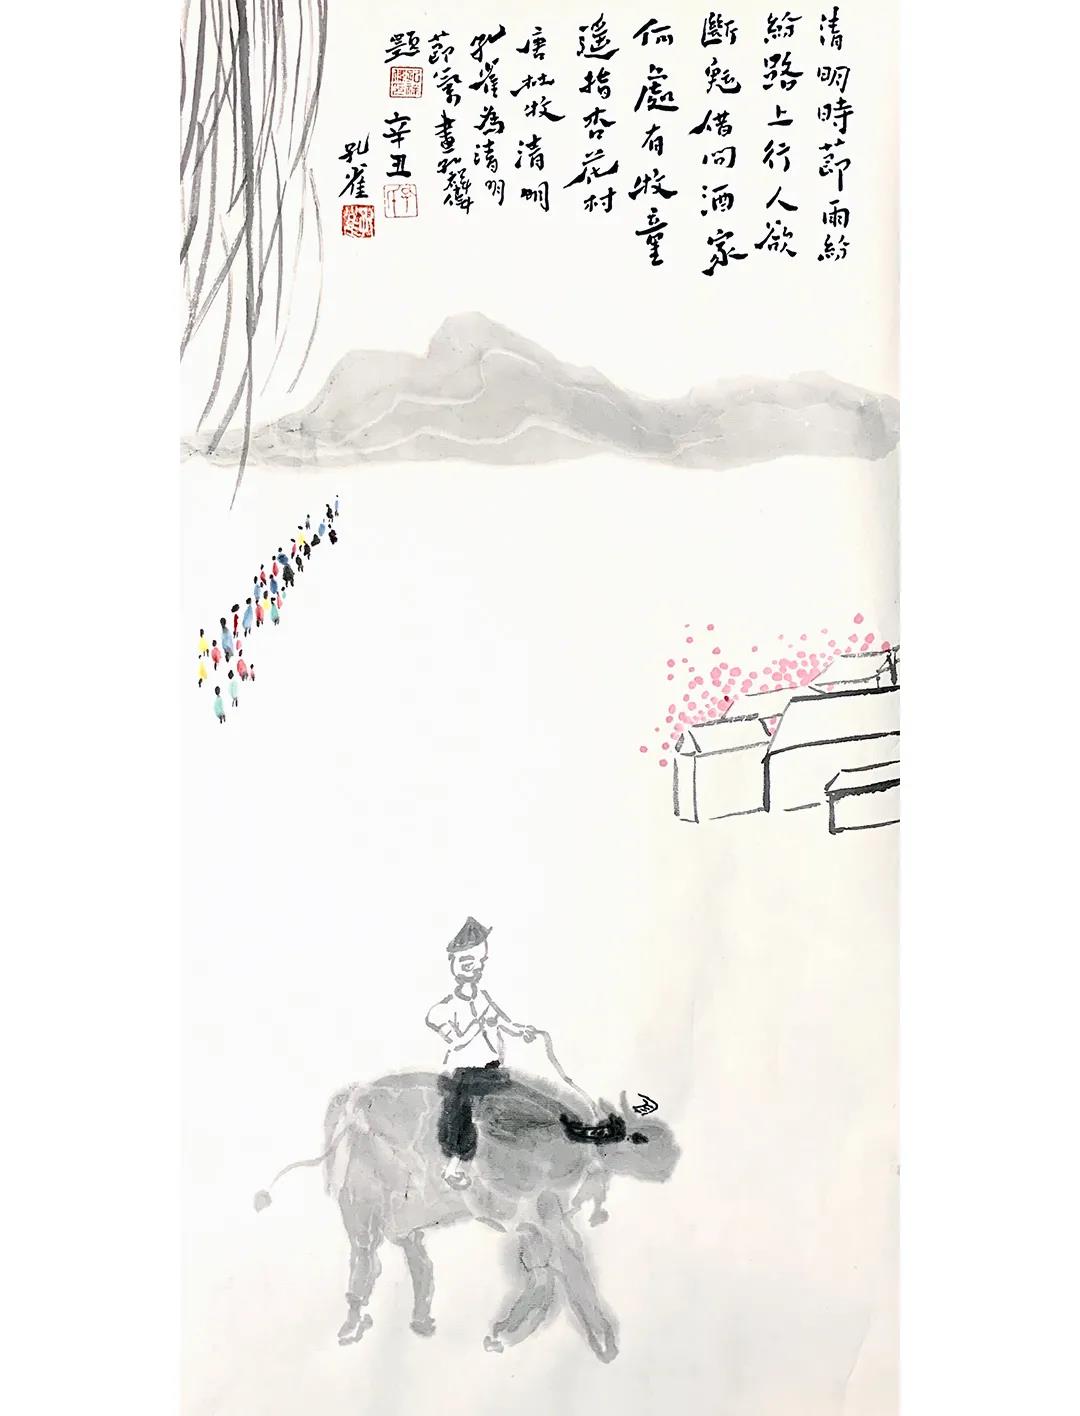 清明時節雨紛
紛路上行人欲
斷魂借問酒家
何處有牧童
遙指杏花村
唐杜牧清明
孔雀為清明
節氣畫孔
題 辛丑
孔雀